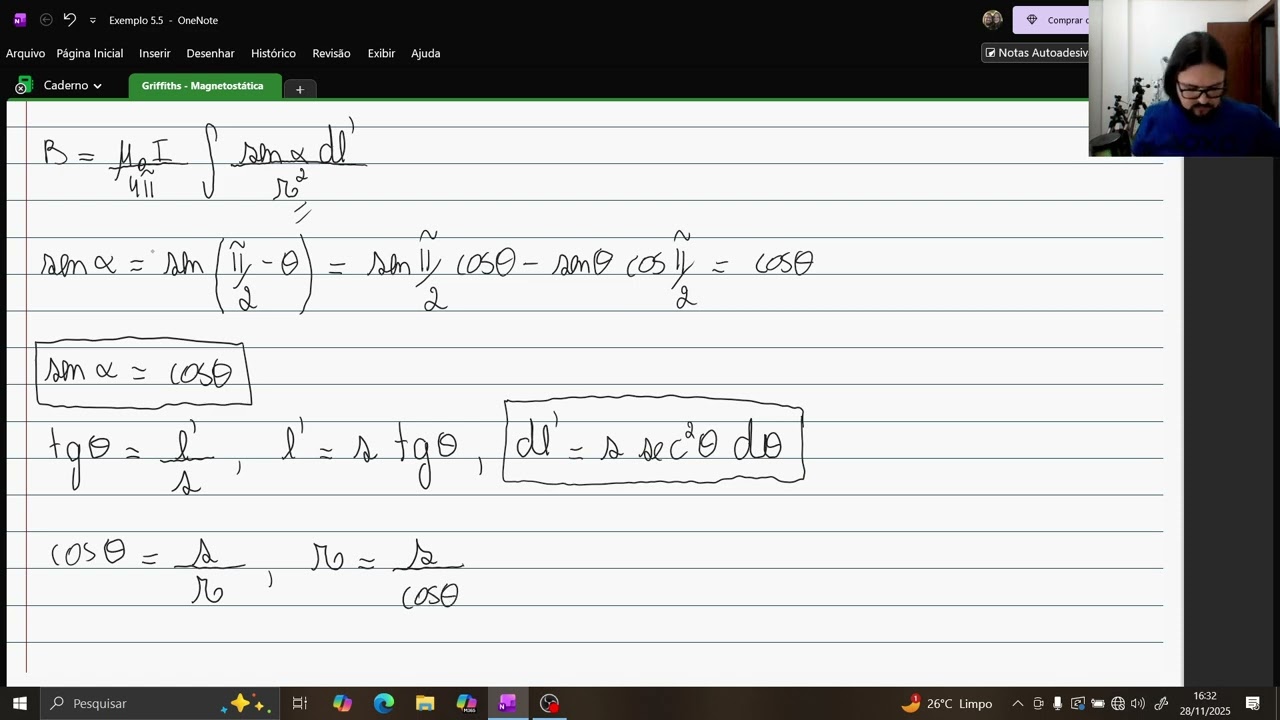 Exemplo 5.5 - OneNote
Comprar
Arquivo Página Inicial Inserir Desenhar Histórico Revisão Exibir Ajuda
Notas Autoadesiv
Caderno Griffiths - Magnetostática +
B = μ₀I/4π ∫ sen α dl'/r²
sen α = sen(π/2 - θ) = sen π/2 cosθ - senθ cos π/2 = cosθ
sen α = cosθ
tgθ = l'/s, l' = s tgθ, dl' = s sec²θ dθ
cosθ = s/r, r = s/cosθ
Pesquisar
1
26°C Limpo
16:32
28/11/2025